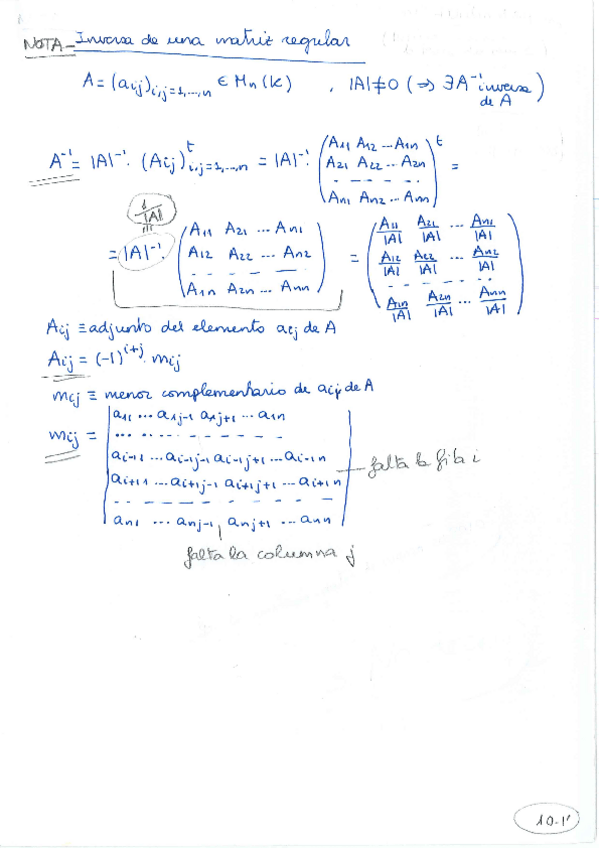 NOTA - Inversa de una matriz regular
A = (aij)i,j=1,...,n ∈ Mn(K) , |A| ≠ 0 (⇒ ∃ A⁻¹ inversa de A)
A⁻¹ = |A|⁻¹ · (Aij)ᵗ i,j=1,...,n = |A|⁻¹ · ( A11 A12 ... A1n
A21 A22 ... A2n
- - - - -
An1 An2 ... Ann )ᵗ =
1/|A|
= |A|⁻¹ · ( A11 A21 ... An1
A12 A22 ... An2
- - - - -
A1n A2n ... Ann )
= ( A11/|A| A21/|A| ... An1/|A|
A12/|A| A22/|A| ... An2/|A|
- - - - - -
A1n/|A| A2n/|A| ... Ann/|A| )
Aij ≡ adjunto del elemento aij de A
Aij = (-1)^(i+j) · mij
mij ≡ menor complementario de aij de A
mij = | a11 ... a1j-1 a1j+1 ... a1n
... ... - - - - - -
ai-11 ... ai-1j-1 ai-1j+1 ... ai-1n
ai+11 ... ai+1j-1 ai+1j+1 ... ai+1n
- - - - - - - -
an1 ... anj-1 anj+1 ... ann |
falta la fila i
falta la columna j
10.1'